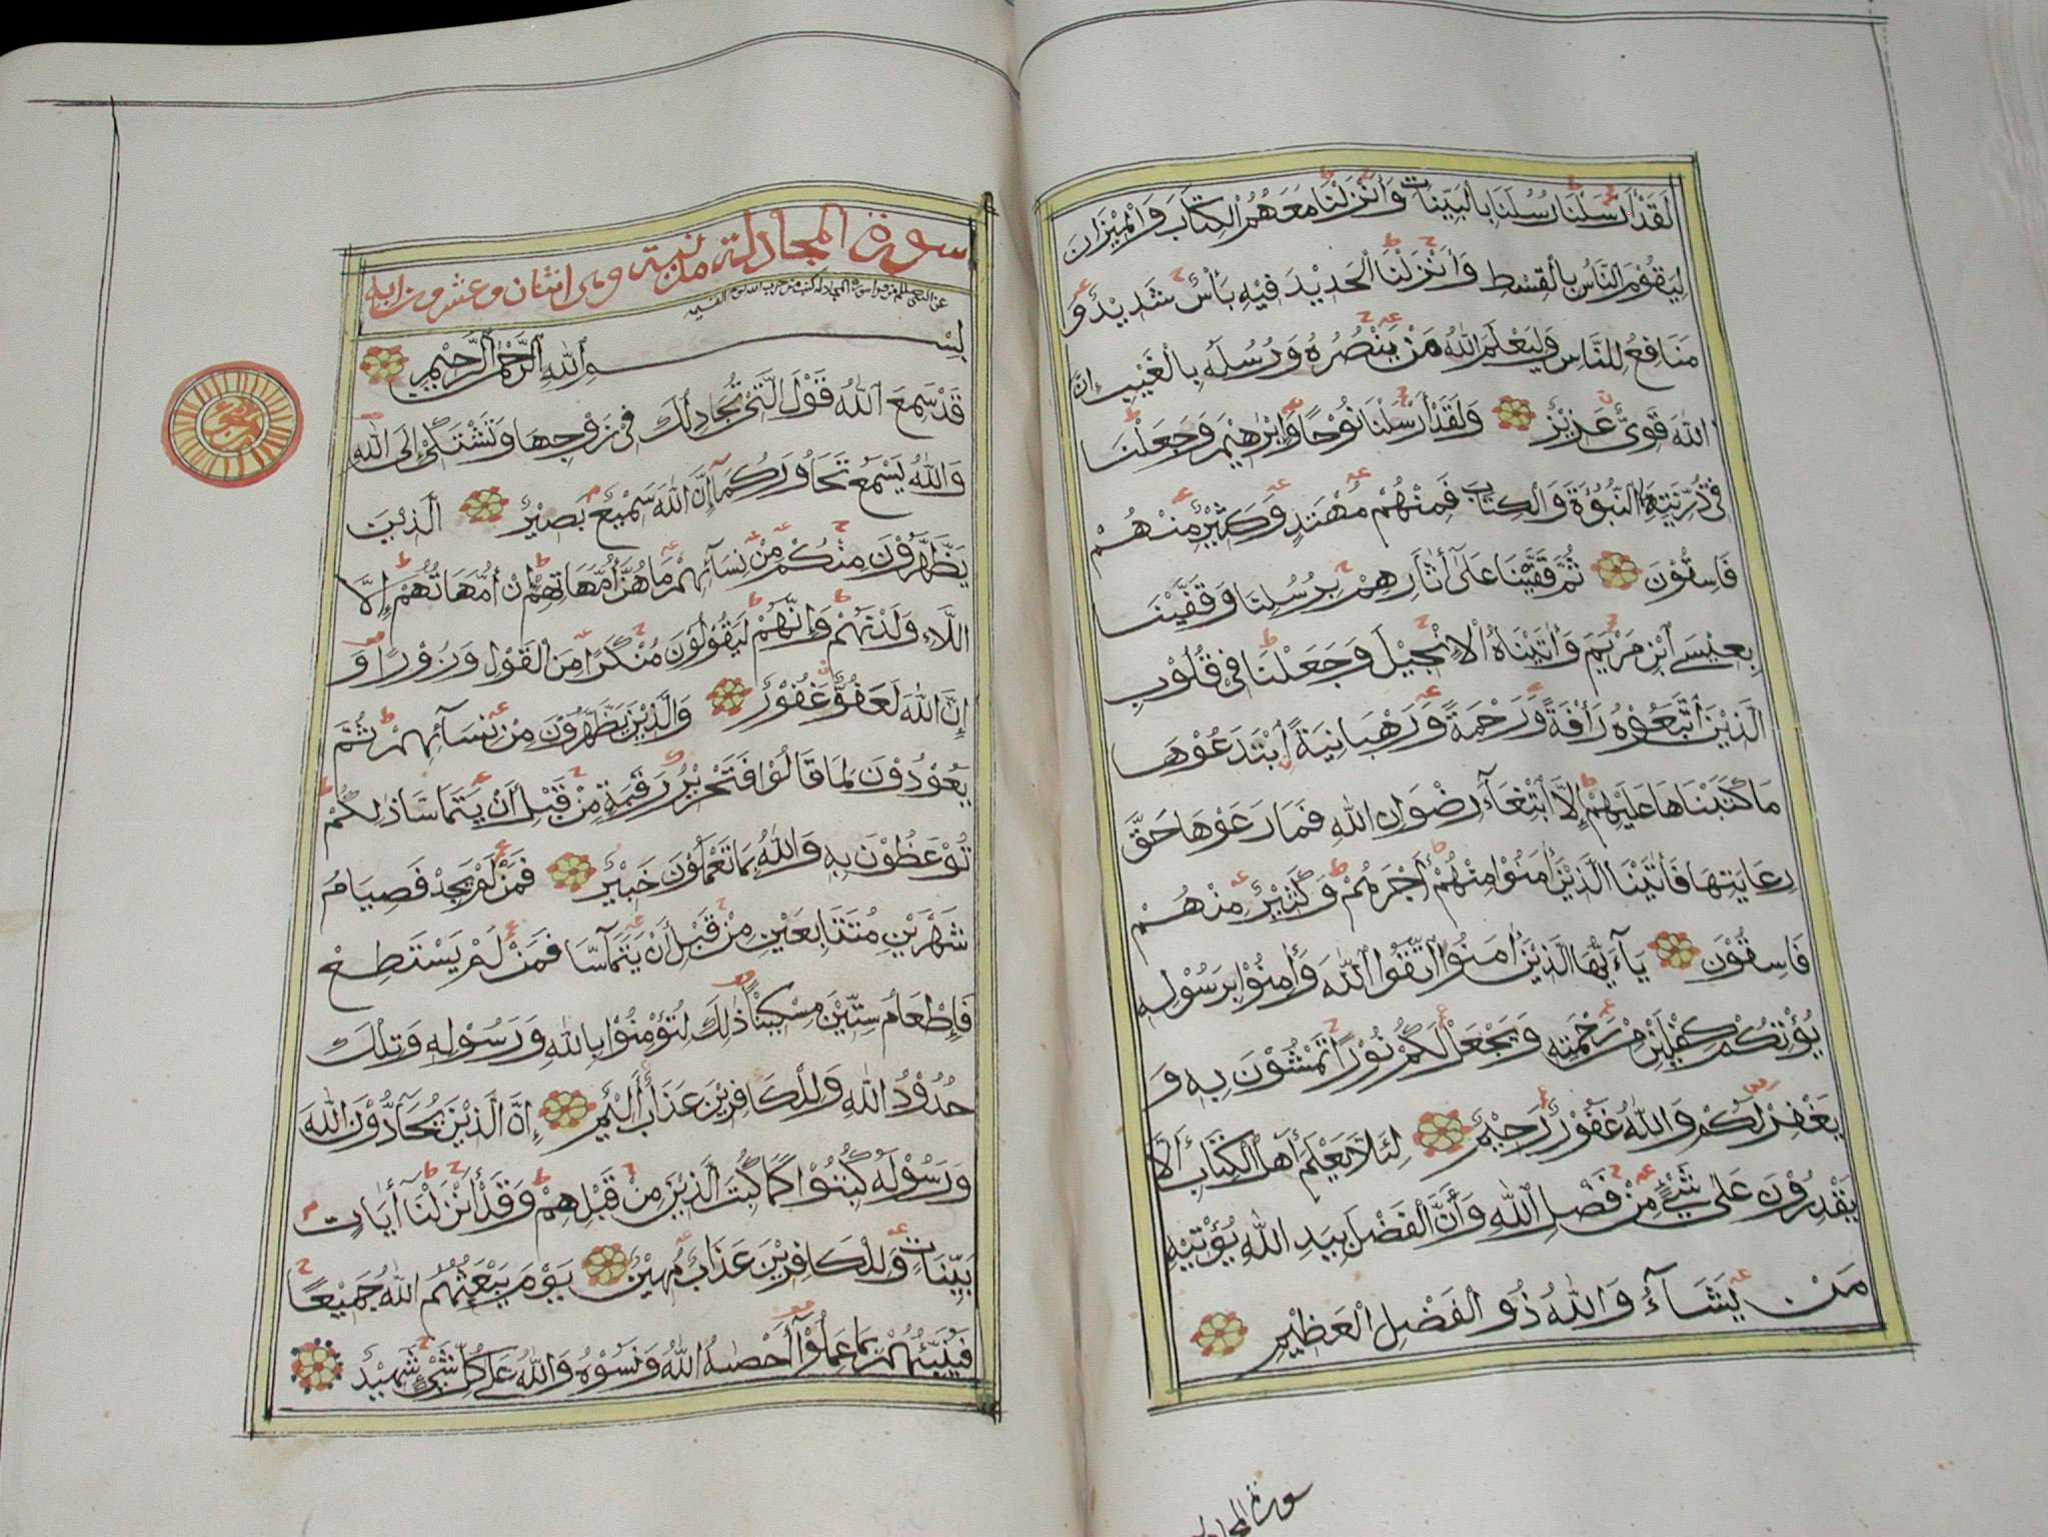 لَقَدْ أَرْسَلْنَا رُسُلَنَا بِالْبَيِّنَاتِ وَأَنْزَلْنَا مَعَهُمُ الْكِتَابَ وَالْمِيْزَانَ
لِيَقُوْمَ النَّاسُ بِالْقِسْطِ وَأَنْزَلْنَا الْحَدِيْدَ فِيْهِ بَأْسٌ شَدِيْدٌ وَ
مَنَافِعُ لِلنَّاسِ وَلِيَعْلَمَ اللّٰهُ مَنْ يَنْصُرُهُ وَرُسُلَهُ بِالْغَيْبِ إِنَّ
اللّٰهَ قَوِيٌّ عَزِيْزٌ وَلَقَدْ أَرْسَلْنَا نُوْحًا وَإِبْرٰهِيْمَ وَجَعَلْنَا
فِيْ ذُرِّيَّتِهِمَا النُّبُوَّةَ وَالْكِتَابَ فَمِنْهُمْ مُهْتَدٍ وَكَثِيْرٌ مِنْهُمْ
فَاسِقُوْنَ ثُمَّ قَفَّيْنَا عَلٰى أٰثَارِهِمْ بِرُسُلِنَا وَقَفَّيْنَا
بِعِيْسَى ابْنِ مَرْيَمَ وَأٰتَيْنَاهُ الْإِنْجِيْلَ وَجَعَلْنَا فِيْ قُلُوْبِ
الَّذِيْنَ اتَّبَعُوْهُ رَأْفَةً وَرَحْمَةً وَرَهْبَانِيَةً ابْتَدَعُوْهَا
مَا كَتَبْنَاهَا عَلَيْهِمْ إِلَّا ابْتِغَآءَ رِضْوَانِ اللّٰهِ فَمَا رَعَوْهَا حَقَّ
رِعَايَتِهَا فَأٰتَيْنَا الَّذِيْنَ أٰمَنُوْا مِنْهُمْ أَجْرَهُمْ وَكَثِيْرٌ مِنْهُمْ
فَاسِقُوْنَ يَآءَيُّهَا الَّذِيْنَ أٰمَنُوا اتَّقُوا اللّٰهَ وَأٰمِنُوْا بِرَسُوْلِهِ
يُؤْتِكُمْ كِفْلَيْنِ مِنْ رَحْمَتِهِ وَيَجْعَلْ لَكُمْ نُوْرًا تَمْشُوْنَ بِهِ وَ
يَغْفِرْ لَكُمْ وَاللّٰهُ غَفُوْرٌ رَحِيْمٌ لِئَلَّا يَعْلَمَ أَهْلُ الْكِتَابِ أَلَّا
يَقْدِرُوْنَ عَلٰى شَيْءٍ مِنْ فَضْلِ اللّٰهِ وَأَنَّ الْفَضْلَ بِيَدِ اللّٰهِ يُؤْتِيْهِ
مَنْ يَشَآءُ وَاللّٰهُ ذُو الْفَضْلِ الْعَظِيْمِ
سورة المجادلة
سورة المجادلة مدنية وهي اثنتان وعشرون اية
بِسْمِ اللّٰهِ الرَّحْمٰنِ الرَّحِيْمِ
قَدْ سَمِعَ اللّٰهُ قَوْلَ الَّتِيْ تُجَادِلُكَ فِيْ زَوْجِهَا وَتَشْتَكِيْ إِلَى اللّٰهِ
وَاللّٰهُ يَسْمَعُ تَحَاوُرَكُمَا إِنَّ اللّٰهَ سَمِيْعٌ بَصِيْرٌ الَّذِيْنَ
يَظَّهَّرُوْنَ مِنْكُمْ مِنْ نِسَآئِهِمْ مَا هُنَّ أُمَّهَاتِهِمْ إِنْ أُمَّهَاتُهُمْ إِلَّا
اللَّاءِ وَلَدْنَهُمْ وَإِنَّهُمْ لَيَقُوْلُوْنَ مُنْكَرًا مِنَ الْقَوْلِ وَزُوْرًا وَ
إِنَّ اللّٰهَ لَعَفُوٌّ غَفُوْرٌ وَالَّذِيْنَ يَظَّهَّرُوْنَ مِنْ نِسَآئِهِمْ ثُمَّ
يَعُوْدُوْنَ لِمَا قَالُوْا فَتَحْرِيْرُ رَقَبَةٍ مِنْ قَبْلِ أَنْ يَتَمَآسَّا ذٰلِكُمْ
تُوْعَظُوْنَ بِهِ وَاللّٰهُ بِمَا تَعْمَلُوْنَ خَبِيْرٌ فَمَنْ لَمْ يَجِدْ فَصِيَامُ
شَهْرَيْنِ مُتَتَابِعَيْنِ مِنْ قَبْلِ أَنْ يَتَمَآسَّا فَمَنْ لَمْ يَسْتَطِعْ
فَإِطْعَامُ سِتِّيْنَ مِسْكِيْنًا ذٰلِكَ لِتُؤْمِنُوْا بِاللّٰهِ وَرَسُوْلِهِ وَتِلْكَ
حُدُوْدُ اللّٰهِ وَلِلْكَافِرِيْنَ عَذَابٌ أَلِيْمٌ إِنَّ الَّذِيْنَ يُحَآدُّوْنَ اللّٰهَ
وَرَسُوْلَهُ كُبِتُوْا كَمَا كُبِتَ الَّذِيْنَ مِنْ قَبْلِهِمْ وَقَدْ أَنْزَلْنَا أٰيَاتٍ
بَيِّنَاتٍ وَلِلْكَافِرِيْنَ عَذَابٌ مُهِيْنٌ يَوْمَ يَبْعَثُهُمُ اللّٰهُ جَمِيْعًا
فَيُنَبِّئُهُمْ بِمَا عَمِلُوْا أَحْصٰىهُ اللّٰهُ وَنَسُوْهُ وَاللّٰهُ عَلٰى كُلِّ شَيْءٍ شَهِيْدٌ